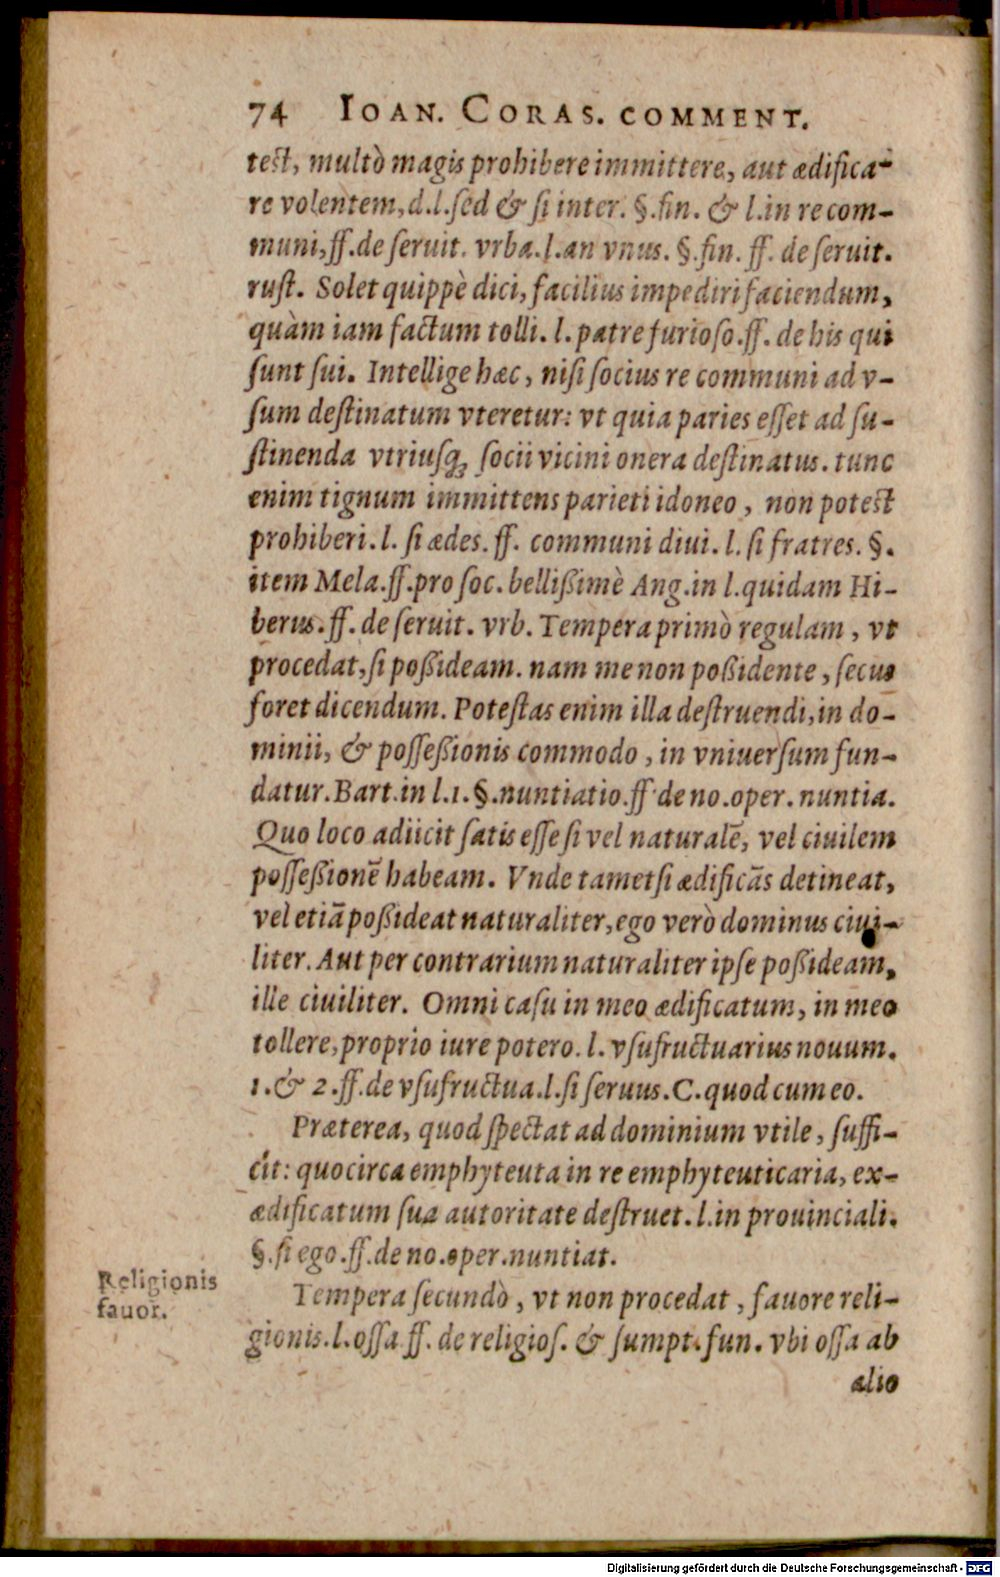 74 IOAN. CORAS. COMMENT.
test, multò magis prohibere immittere, aut ædifica-
re volentem, d.l.ſed & ſi inter. §.fin. & l.in re com-
muni, ff.de ſeruit. vrba.l.an vnus. §.fin. ff. de ſeruit.
ruſt. Solet quippè dici, facilius impediri faciendum,
quàm iam factum tolli. l. patre furioſo.ff. de his qui
ſunt ſui. Intellige hæc, niſi ſocius re communi ad v-
ſum deſtinatum vteretur: vt quia paries eſſet ad ſu-
ſtinenda vtriuſq; ſocii vicini onera deſtinatus. tunc
enim tignum immittens parieti idoneo, non potest
prohiberi. l. ſi ædes. ff. communi diui. l. ſi fratres. §.
item Mela.ff.pro ſoc. bellißimè Ang.in l.quidam Hi-
berus.ff. de ſeruit. vrb. Tempera primò regulam, vt
procedat, ſi poßideam. nam me non poßidente, ſecus
foret dicendum. Poteſtas enim illa deſtruendi, in do-
minii, & poſſeßionis commodo, in vniuerſum fun-
datur. Bart.in l.1.§.nuntiatio.ff de no.oper. nuntia.
Quo loco adiicit ſatis eſſe ſi vel naturalē, vel ciuilem
poſſeßionē habeam. Vnde tametſi ædificās detineat,
vel etiā poßideat naturaliter, ego verò dominus ciui-
liter. Aut per contrarium naturaliter ipſe poßideam,
ille ciuiliter. Omni caſu in meo ædificatum, in meo
tollere, proprio iure potero. l. vſufructuarius nouum.
1.& 2.ff.de vſufructua.l.ſi ſeruus.C.quod cum eo.
Præterea, quod ſpectat ad dominium vtile, ſuffi-
cit: quocirca emphyteuta in re emphyteuticaria, ex-
ædificatum ſua autoritate deſtruet. l.in prouinciali.
§.ſi ego.ff.de no.oper.nuntiat.
Religionis
fauor.
Tempera ſecundò, vt non procedat, fauore reli-
gionis.l.oſſa ff. de religioſ. & ſumpt.fun. vbi oſſa ab
alio
Digitalisierung gefördert durch die Deutsche Forschungsgemeinschaft - DFG